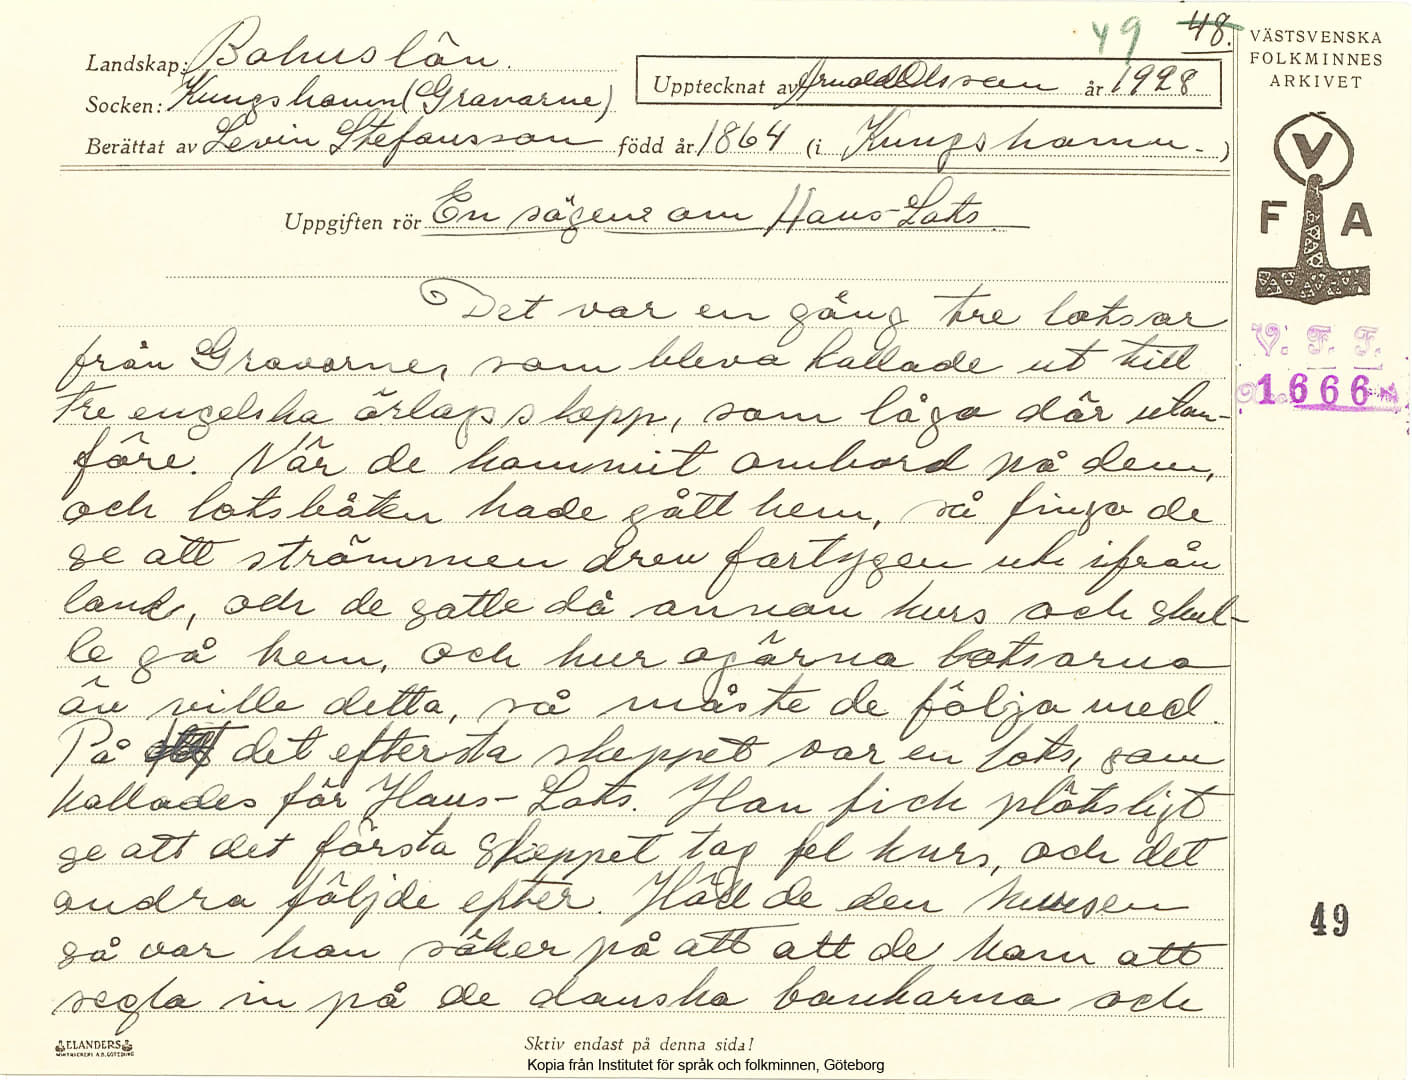 49 48.
Landskap: Bohuslän.
Socken: Kungshamn (Gravarne)
Upptecknat av Arnold Olsson år 1928
Berättat av Levin Stefansson född år 1864 (i Kungshamn.)
VÄSTSVENSKA
FOLKMINNES
ARKIVET
V
F A
Uppgiften rör En sägen om Hans-Lots.
Det var en gång tre lotsar
från Gravarne, som bleva kallade ut till
tre engelska örlogsskepp, som lågo där utan-
före. När de kommit ombord på dem,
och lotsbåten hade gått hem, så fingo de
se att strömmen drev fartygen ut ifrån
land, och de satte då annan kurs och skul-
le gå hem, och hur ogärna lotsarna
än ville detta, så måste de följa med.
På det eftersta skeppet var en lots, som
kallades för Hans-Lots. Han fick plötsligt
se att det första skeppet tog fel kurs, och det
andra följde efter. Höll de den kursen
så var han säker på att att de kom att
segla in på de danska bankarna och
V. F. F.
1666
49
ELANDERS
BOKTRYCKERI A.B. GÖTEBORG
Skriv endast på denna sida!
Kopia från Institutet för språk och folkminnen, Göteborg